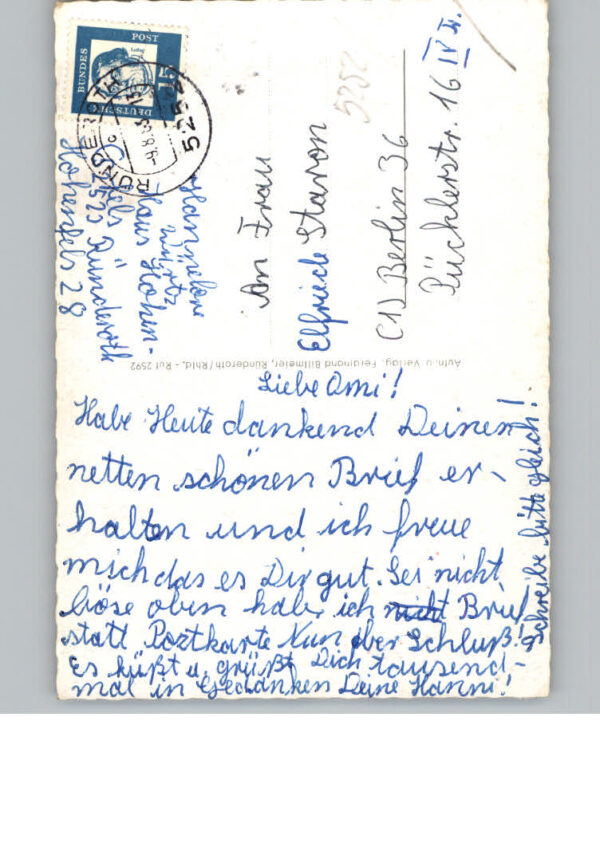 Liebe Omi!
Habe Heute dankend Deinen
netten schönen Brief er-
halten und ich freue
mich das es Dir gut. Sei nicht
böse oben habe ich nicht Brief
statt Postkarte Nun aber Schluß!
Es küßt u. grüßt Dich tausend-
mal in Gedanken Deine Hanni!
Schreibe bitte gleich!
An Frau
Elfriede Staron
(1) Berlin 36
Pücklerstr. 16 IV
5252
Hannelore
Haus Hohen-
fels
525 Ründeroth
Hohenfels 28
DEUTSCHE
BUNDES
POST
15
RÜNDEROTH
525
Aufn. u. Verlag. Ferdinand Billmeier, Ründeroth/Rhld. - Ruf 2592